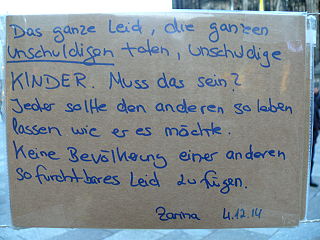 Das ganze Leid, die ganzen
unschuldigen toten, unschuldige
KINDER. Muss das sein?
Jeder sollte den anderen so leben
lassen wie er es möchte.
Keine Bevölkerung einer anderen
so furchtbares Leid zu fügen.
Zarina 4.12.14